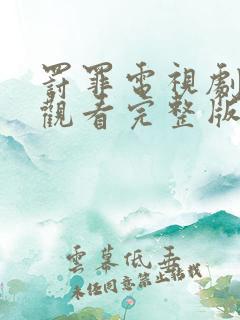 罰罪電視劇
觀看完整版
雲幕低垂
未經同意禁止轉載